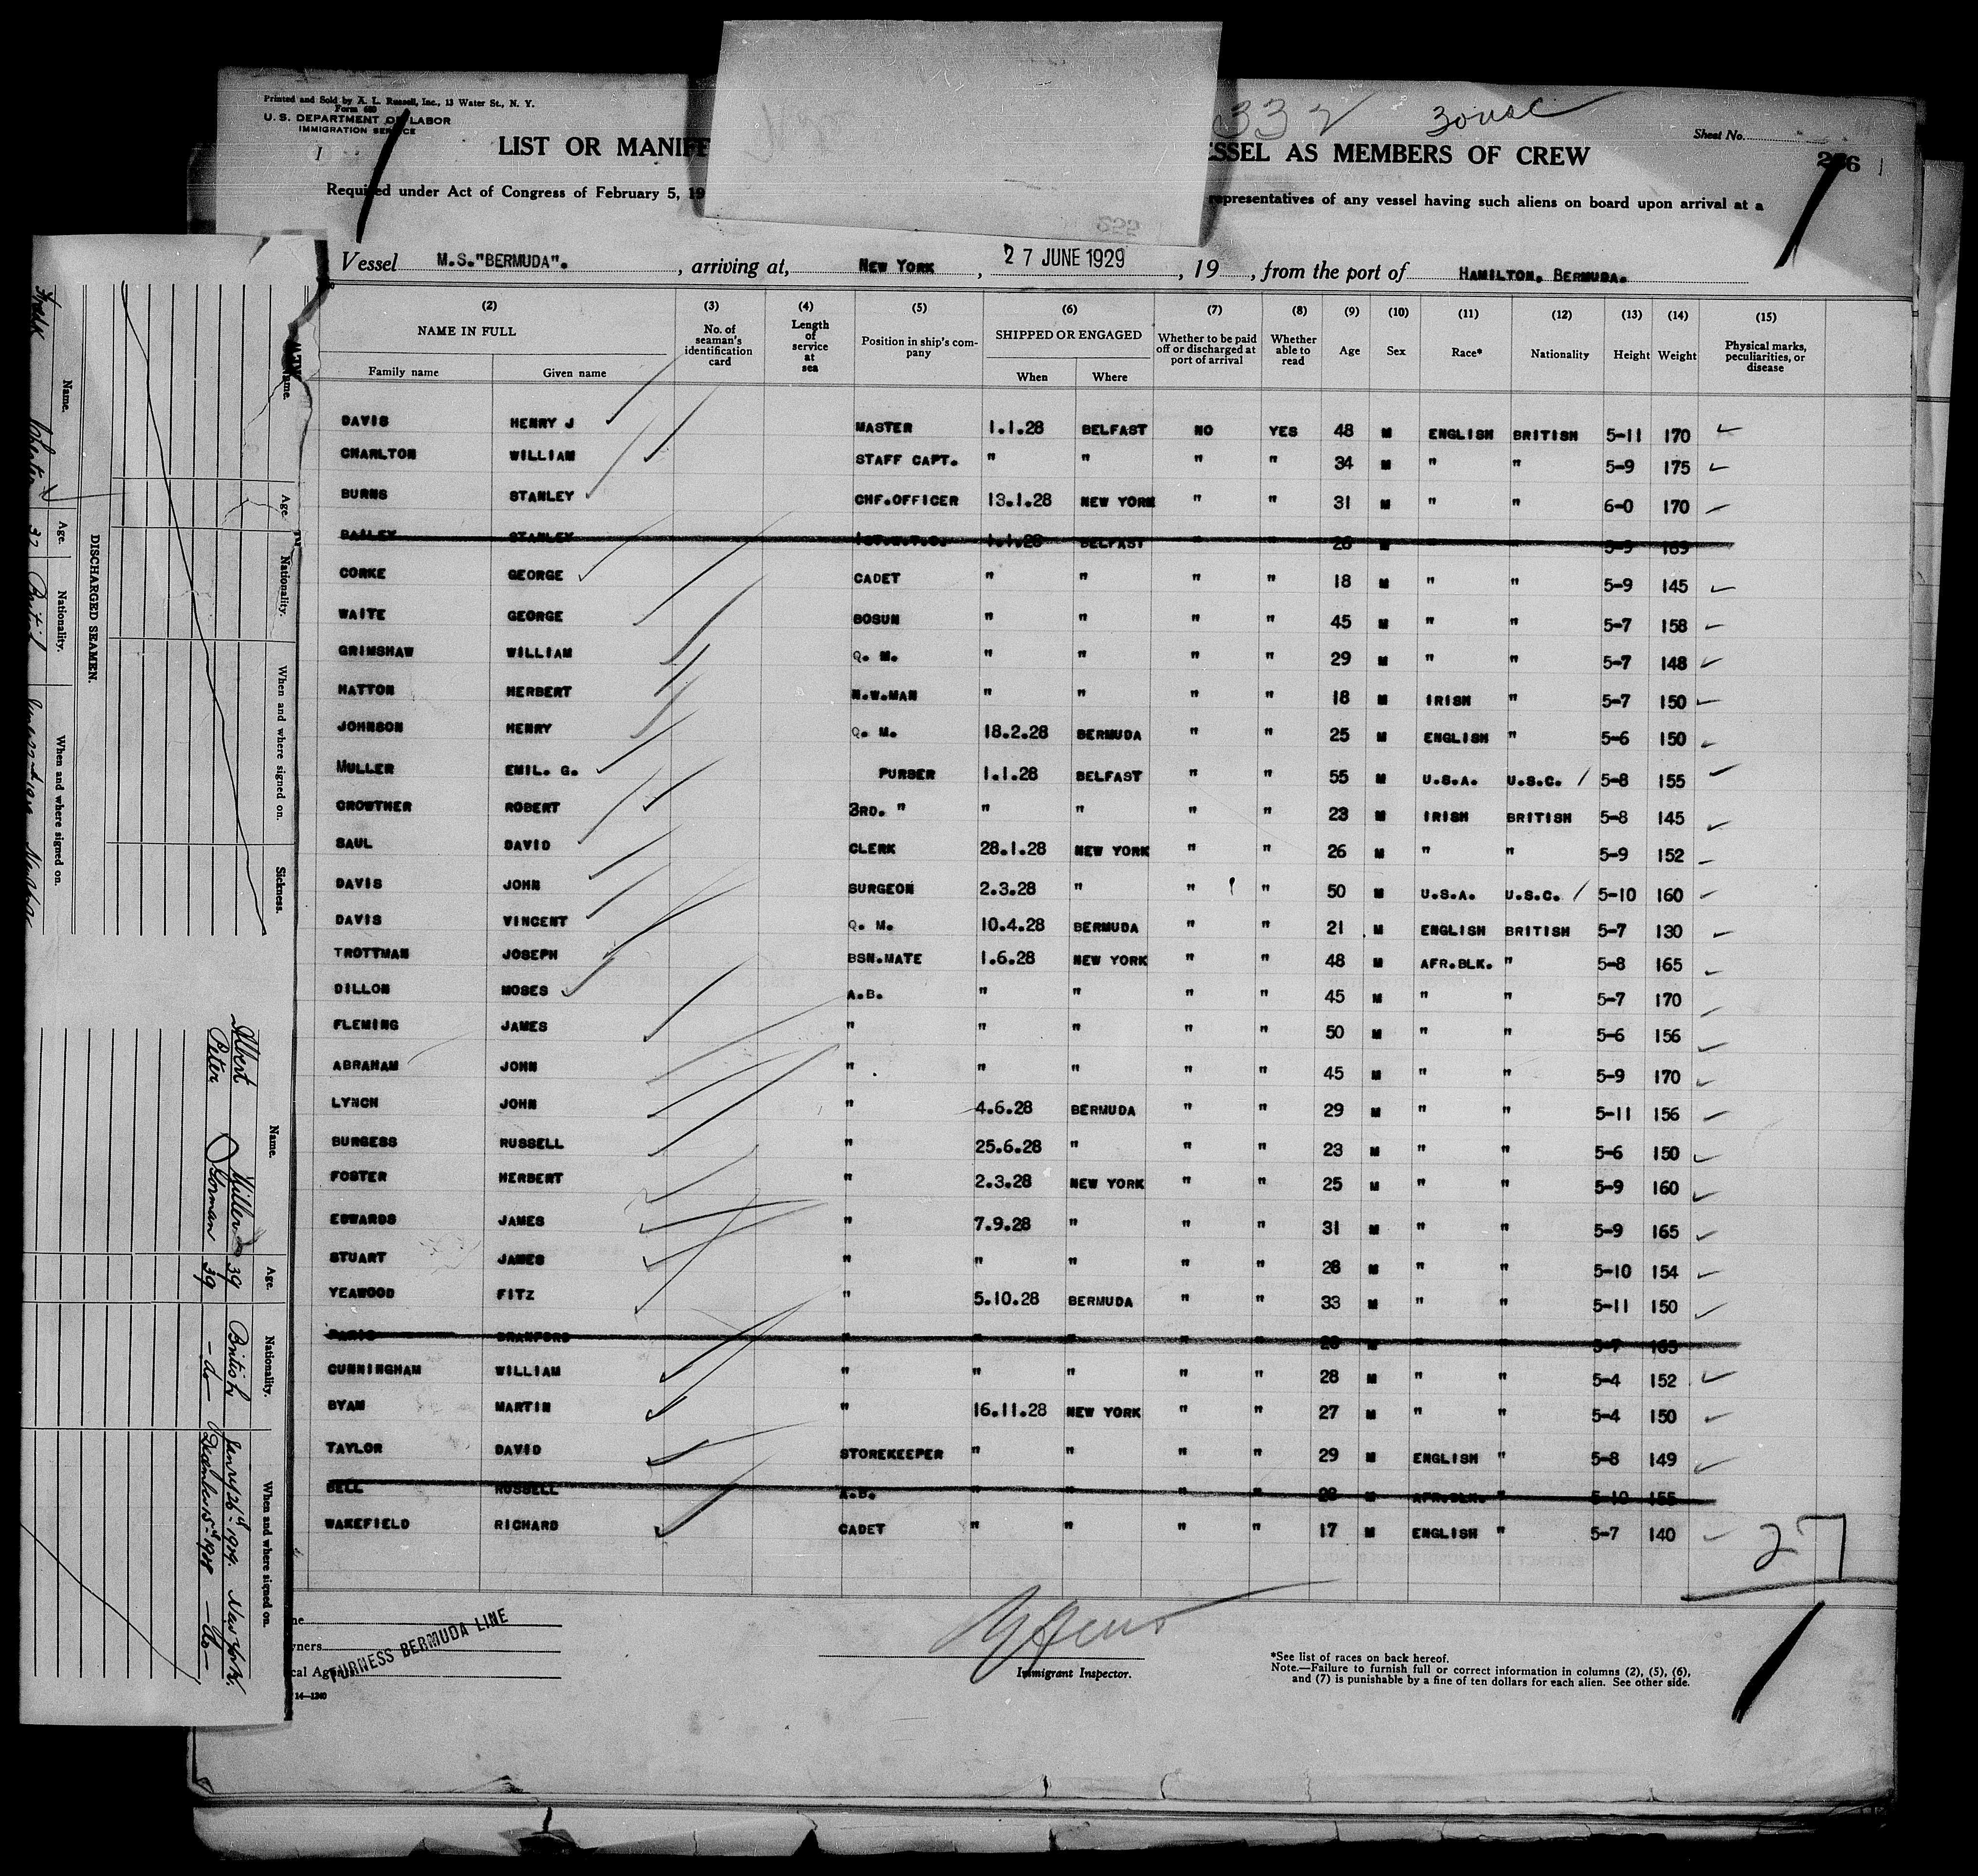 Printed and Sold by A. L. Russell, Inc., 13 Water St., N. Y.
Form 680
U. S. DEPARTMENT OF LABOR
IMMIGRATION SERVICE
1
332
3 ousc
Sheet No.
LIST OR MANIFE
ESSEL AS MEMBERS OF CREW
Required under Act of Congress of February 5, 19
representatives of any vessel having such aliens on board upon arrival at a
Vessel M.S."BERMUDA". , arriving at, NEW YORK , 27 JUNE 1929 , 19 , from the port of HAMILTON, BERMUDA.
(2) (3) (4) (5) (6) (7) (8) (9) (10) (11) (12) (13) (14) (15)
NAME IN FULL
Family name Given name
No. of seaman's identification card
Length of service at sea
Position in ship's company
SHIPPED OR ENGAGED
When Where
Whether to be paid off or discharged at port of arrival
Whether able to read
Age Sex Race* Nationality Height Weight
Physical marks, peculiarities, or disease
DAVIS HENRY J MASTER 1.1.28 BELFAST NO YES 48 M ENGLISH BRITISH 5-11 170
CHARLTON WILLIAM STAFF CAPT. " " " " 34 M " " 5-9 175
BURNS STANLEY CHF.OFFICER 13.1.28 NEW YORK " " 31 M " " 6-0 170
BAILEY STANLEY 1.1.28 BELFAST " " 26 M " " 5-9 169
CORKE GEORGE CADET " " " " 18 M " " 5-9 145
WAITE GEORGE BOSUN " " " " 45 M " " 5-7 158
GRIMSHAW WILLIAM Q. M. " " " " 29 M " " 5-7 148
HATTON HERBERT N.W.MAN " " " " 18 M IRISH " 5-7 150
JOHNSON HENRY Q. M. 18.2.28 BERMUDA " " 25 M ENGLISH " 5-6 150
MULLER EMIL. G. PURSER 1.1.28 BELFAST " " 55 M U.S.A. U.S.C. / 5-8 155
CROWTHER ROBERT 3RD. " " " " " 23 M IRISH BRITISH 5-8 145
SAUL DAVID CLERK 28.1.28 NEW YORK " " 26 M " " 5-9 152
DAVIS JOHN SURGEON 2.3.28 " " " 50 M U.S.A. U.S.C. / 5-10 160
DAVIS VINCENT Q. M. 10.4.28 BERMUDA " " 21 M ENGLISH BRITISH 5-7 130
TROTTMAN JOSEPH BSN.MATE 1.6.28 NEW YORK " " 48 M AFR.BLK. " 5-8 165
DILLON MOSES A.B. " " " " 45 M " " 5-7 170
FLEMING JAMES " " " " " 50 M " " 5-6 156
ABRAHAM JOHN " " " " " 45 M " " 5-9 170
LYNCH JOHN " 4.6.28 BERMUDA " " 29 M " " 5-11 156
BURGESS RUSSELL " 25.6.28 " " " 23 M " " 5-6 150
FOSTER HERBERT " 2.3.28 NEW YORK " " 25 M " " 5-9 160
EDWARDS JAMES " 7.9.28 " " " 31 M " " 5-9 165
STUART JAMES " " " " " 28 M " " 5-10 154
YEAWOOD FITZ " 5.10.28 BERMUDA " " 33 M " " 5-11 150
BRANFORD " " " " " M " " 5-7 165
CUNNINGHAM WILLIAM " " " " " 28 M " " 5-4 152
BYAM MARTIN " 16.11.28 NEW YORK " " 27 M " " 5-4 150
TAYLOR DAVID STOREKEEPER " " " " 29 M ENGLISH " 5-8 149
BELL RUSSELL A.B. " " " " 28 M AFR.BLK. " 5-10 155
WAKEFIELD RICHARD CADET " " " " 17 M ENGLISH " 5-7 140
27
FURNESS BERMUDA LINE
Immigrant Inspector.
14—1240
*See list of races on back hereof.
Note.—Failure to furnish full or correct information in columns (2), (5), (6),
and (7) is punishable by a fine of ten dollars for each alien. See other side.
DISCHARGED SEAMEN.
Name. Age. Nationality. When and where signed on.
37 British
Name. Age. Nationality. When and where signed on. Sickness.
Name. Age. Nationality. When and where signed on.
Albert Miller 39 British 1929. New York.
Peter Gorman 39 -do- December 15th 1928 -do-